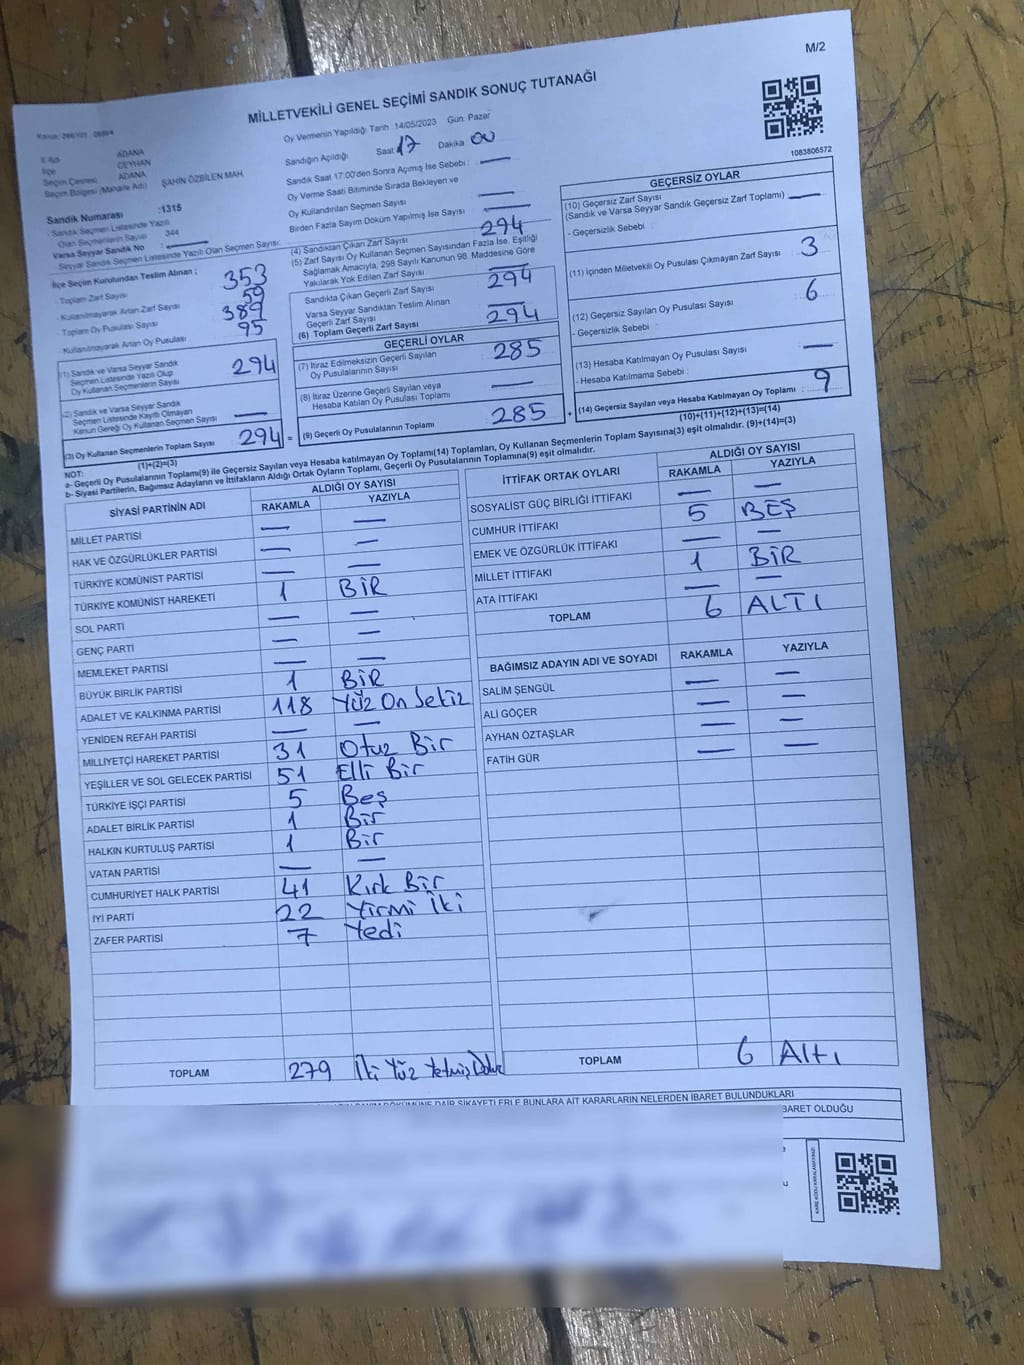 M/2
MİLLETVEKİLİ GENEL SEÇİMİ SANDIK SONUÇ TUTANAĞI
Oy Vermenin Yapıldığı Tarih : 14/05/2023 Gün: Pazar
Sandığın Açıldığı Saat: 17 Dakika 00
Sandık Saat 17:00'den Sonra Açılmış İse Sebebi : —
Oy Verme Saati Bitiminde Sırada Bekleyen ve
Oy Kullandırılan Seçmen Sayısı —
Birden Fazla Sayım Döküm Yapılmış İse Sayısı —
İl Adı ADANA
İlçe CEYHAN
Seçim Çevresi ADANA
Seçim Bölgesi (Mahalle Adı) ŞAHİN ÖZBİLEN MAH.
Sandık Numarası :1315
- Sandık Seçmen Listesinde Yazılı
Olan Seçmenlerin Sayısı 344
Varsa Seyyar Sandık No : —
Seyyar Sandık Seçmen Listesinde Yazılı Olan Seçmen Sayısı:
İlçe Seçim Kurulundan Teslim Alınan ;
- Toplam Zarf Sayısı 353
- Kullanılmayarak Artan Zarf Sayısı 59
- Toplam Oy Pusulası Sayısı 389
- Kullanılmayarak Artan Oy Pusulası 95
(1) Sandık ve Varsa Seyyar Sandık
Seçmen Listesinde Yazılı Olup
Oy Kullanan Seçmenlerin Sayısı 294
(2) Sandık ve Varsa Seyyar Sandık
Seçmen Listesinde Kayıtlı Olmayan
Kanun Gereği Oy Kullanan Seçmen Sayısı —
(3) Oy Kullanan Seçmenlerin Toplam Sayısı 294 =
(1)+(2)=(3)
(4) Sandıktan Çıkan Zarf Sayısı 294
(5) Zarf Sayısı Oy Kullanan Seçmen Sayısından Fazla İse, Eşitliği
Sağlamak Amacıyla, 298 Sayılı Kanunun 98. Maddesine Göre
Yakılarak Yok Edilen Zarf Sayısı —
Sandıkta Çıkan Geçerli Zarf Sayısı 294
Varsa Seyyar Sandıktan Teslim Alınan
Geçerli Zarf Sayısı —
(6) Toplam Geçerli Zarf Sayısı 294
GEÇERLİ OYLAR
(7) İtiraz Edilmeksizin Geçerli Sayılan
Oy Pusulalarının Sayısı 285
(8) İtiraz Üzerine Geçerli Sayılan veya
Hesaba Katılan Oy Pusulası Toplamı —
(9) Geçerli Oy Pusulalarının Toplamı 285 +
1083806572
GEÇERSİZ OYLAR
(10) Geçersiz Zarf Sayısı
(Sandık ve Varsa Seyyar Sandık Geçersiz Zarf Toplamı) —
- Geçersizlik Sebebi :
(11) İçinden Milletvekili Oy Pusulası Çıkmayan Zarf Sayısı 3
(12) Geçersiz Sayılan Oy Pusulası Sayısı 6
- Geçersizlik Sebebi :
(13) Hesaba Katılmayan Oy Pusulası Sayısı —
- Hesaba Katılmama Sebebi :
(14) Geçersiz Sayılan veya Hesaba Katılmayan Oy Toplamı : 9
(10)+(11)+(12)+(13)=(14)
NOT:
a- Geçerli Oy Pusulasının Toplamı(9) ile Geçersiz Sayılan veya Hesaba katılmayan Oy Toplamı(14) Toplamları, Oy Kullanan Seçmenlerin Toplam Sayısına(3) eşit olmalıdır. (9)+(14)=(3)
b- Siyasi Partilerin, Bağımsız Adayların ve İttifakların Aldığı Ortak Oyların Toplamı, Geçerli Oy Pusulalarının Toplamına(9) eşit olmalıdır.
SİYASİ PARTİNİN ADI ALDIĞI OY SAYISI
RAKAMLA YAZIYLA
MİLLET PARTİSİ — —
HAK VE ÖZGÜRLÜKLER PARTİSİ — —
TÜRKİYE KOMÜNİST PARTİSİ — —
TÜRKİYE KOMÜNİST HAREKETİ 1 BİR
SOL PARTİ — —
GENÇ PARTİ — —
MEMLEKET PARTİSİ — —
BÜYÜK BİRLİK PARTİSİ 1 BİR
ADALET VE KALKINMA PARTİSİ 118 Yüz On Sekiz
YENİDEN REFAH PARTİSİ — —
MİLLİYETÇİ HAREKET PARTİSİ 31 Otuz Bir
YEŞİLLER VE SOL GELECEK PARTİSİ 51 Elli Bir
TÜRKİYE İŞÇİ PARTİSİ 5 Beş
ADALET BİRLİK PARTİSİ 1 Bir
HALKIN KURTULUŞ PARTİSİ 1 Bir
VATAN PARTİSİ — —
CUMHURİYET HALK PARTİSİ 41 Kırk Bir
İYİ PARTİ 22 Yirmi İki
ZAFER PARTİSİ 7 Yedi
TOPLAM 279 İki Yüz Yetmiş Dokuz
İTTİFAK ORTAK OYLARI ALDIĞI OY SAYISI
RAKAMLA YAZIYLA
SOSYALİST GÜÇ BİRLİĞİ İTTİFAKI — —
CUMHUR İTTİFAKI 5 BEŞ
EMEK VE ÖZGÜRLÜK İTTİFAKI — —
MİLLET İTTİFAKI 1 BİR
ATA İTTİFAKI — —
TOPLAM 6 ALTI
BAĞIMSIZ ADAYIN ADI VE SOYADI RAKAMLA YAZIYLA
SALİM ŞENGÜL — —
ALİ GÖÇER — —
AYHAN ÖZTAŞLAR — —
FATİH GÜR — —
TOPLAM 6 Altı
DÖKÜMÜNE DAİR ŞİKAYETLERLE BUNLARA AİT KARARLARIN NELERDEN İBARET BULUNDUKLARI
BARET OLDUĞU